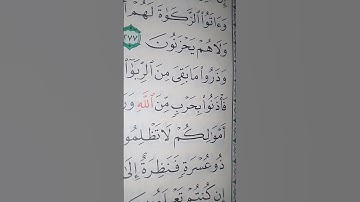 وَءَاتَوُا۟ ٱلزَّكَوٰةَ لَهُمْ
وَلَا هُمْ يَحْزَنُونَ ٢٧٧
وَذَرُوا۟ مَا بَقِىَ مِنَ ٱلرِّبَوٰٓا۟
فَأْذَنُوا۟ بِحَرْبٍ مِّنَ ٱللَّهِ
أَمْوَٰلِكُمْ لَا تَظْلِمُو
ذُو عُسْرَةٍ فَنَظِرَةٌ إِلَىٰ
إِن كُنتُمْ تَعْلَمُونَ